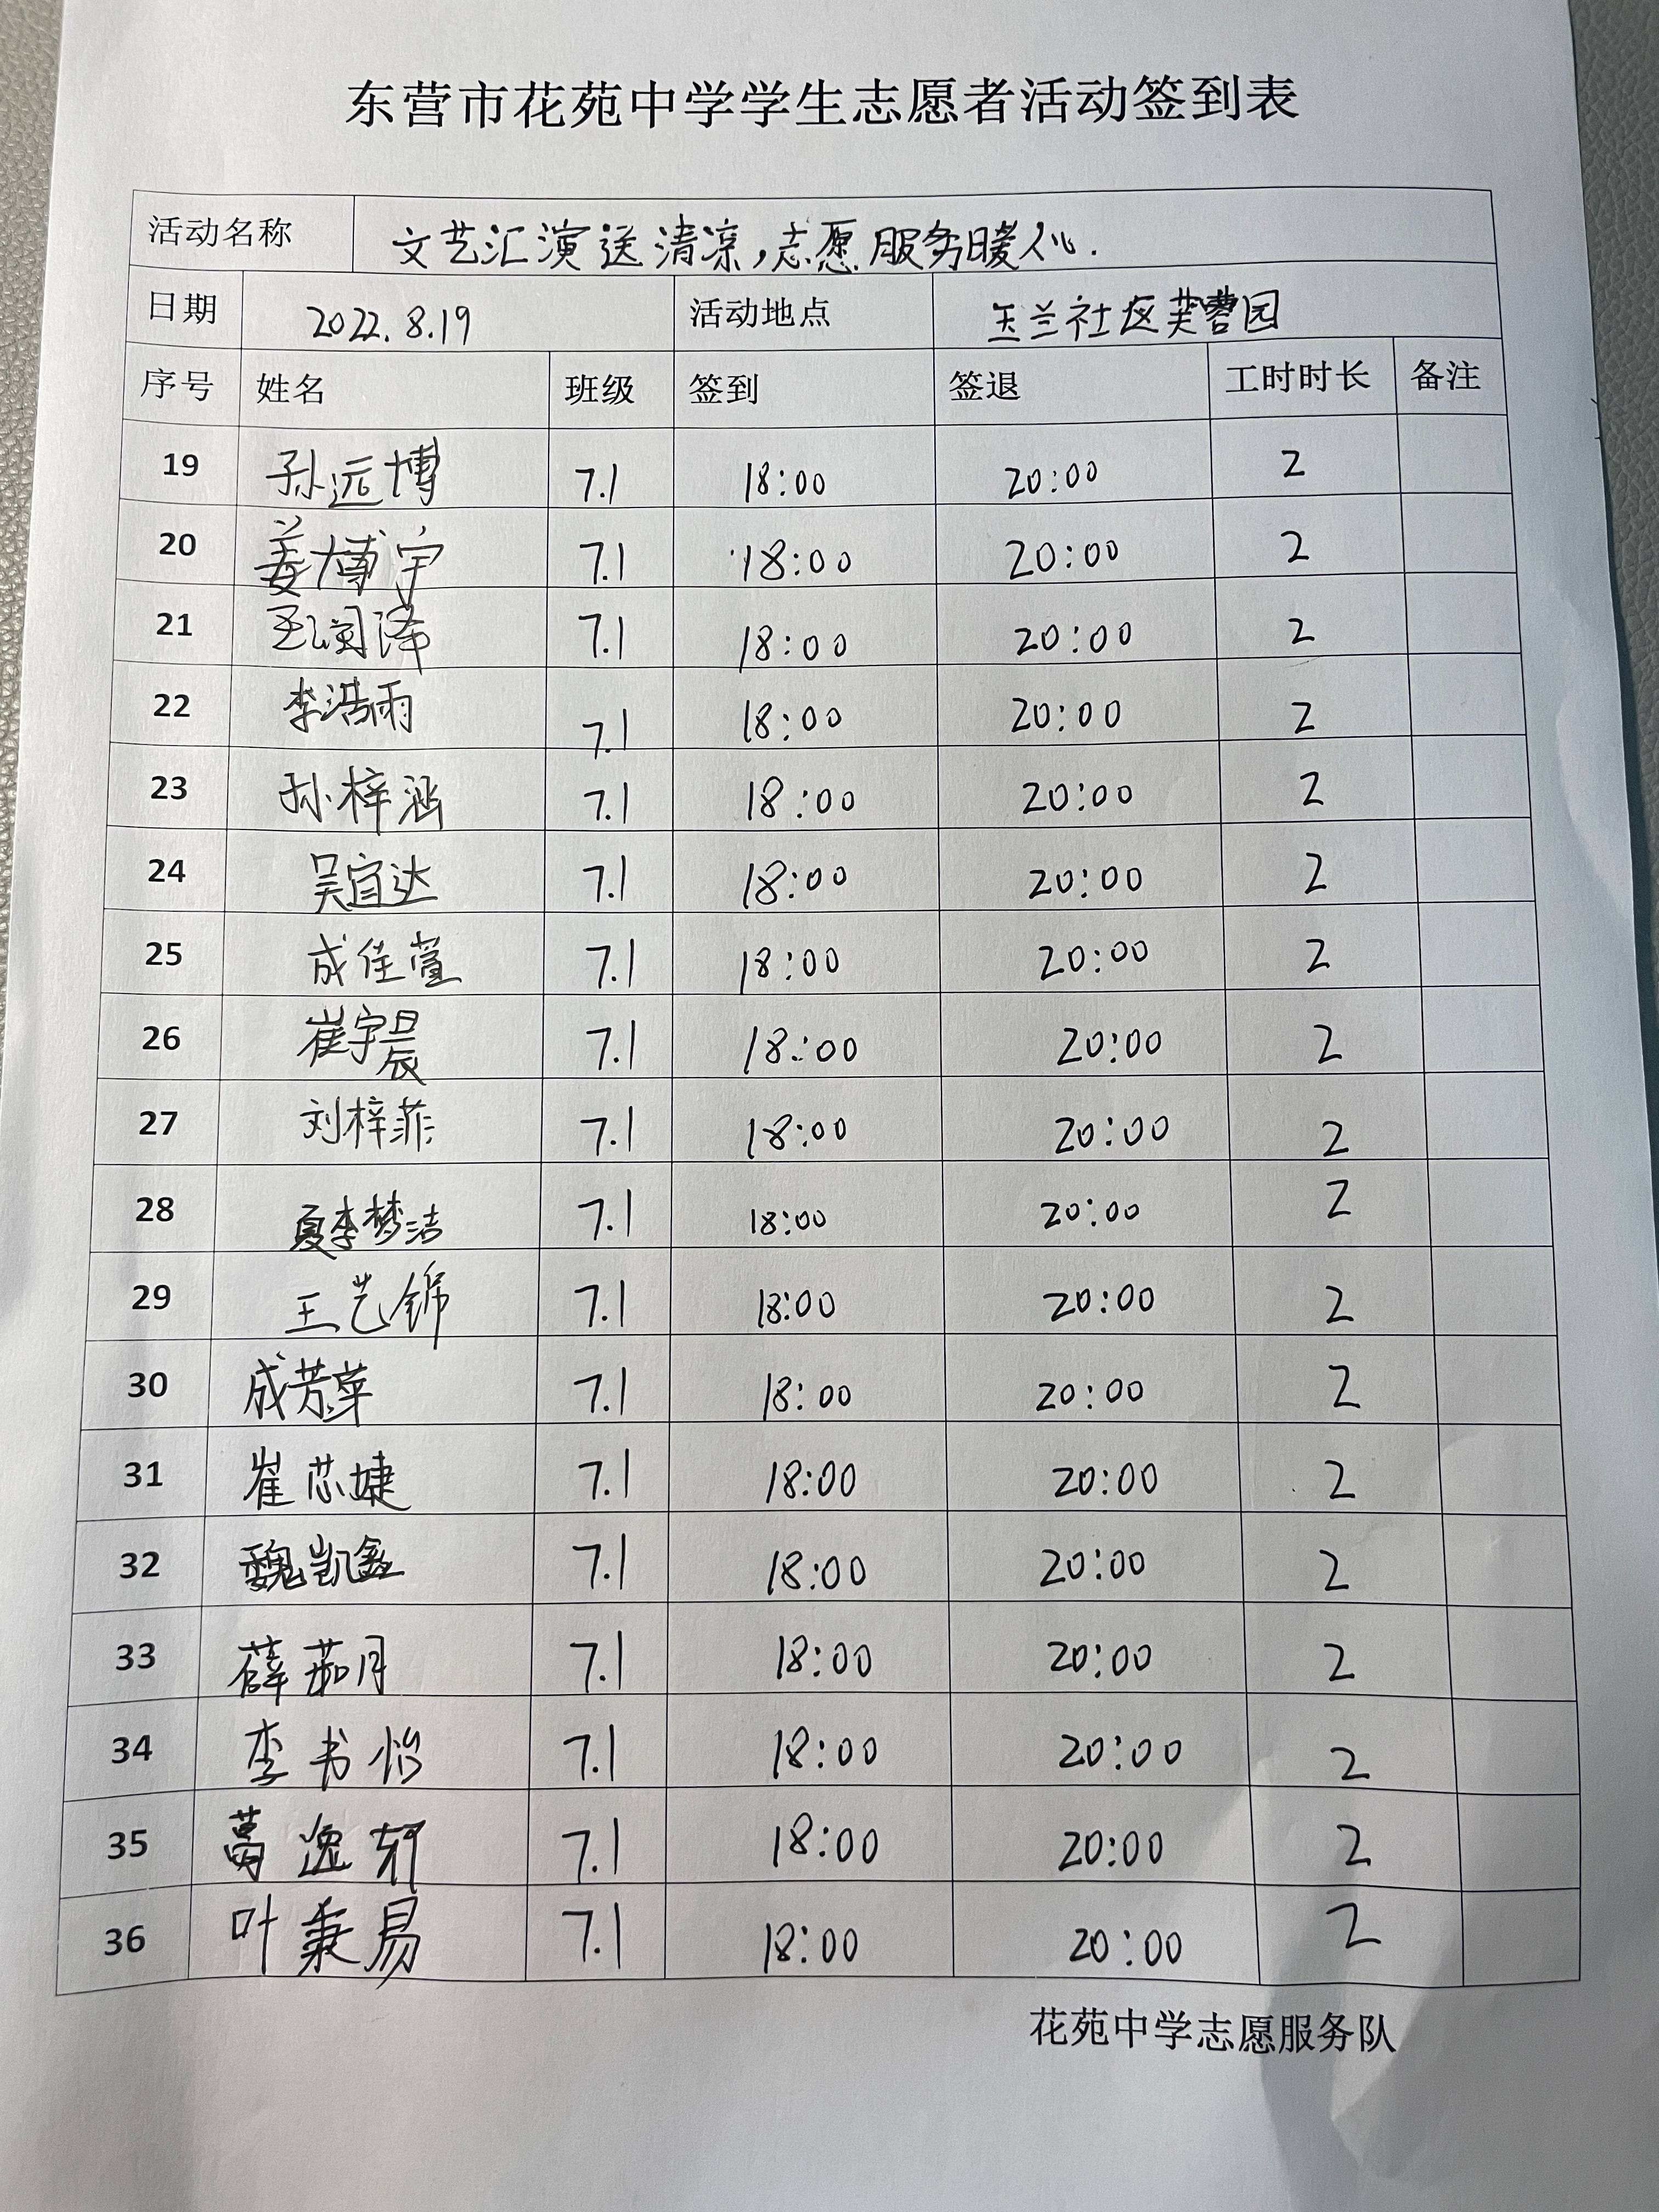 东营市花苑中学学生志愿者活动签到表
活动名称 文艺汇演送清凉,志愿服务暖人心.
日期 2022.8.19 活动地点 玉兰社区芙蓉园
序号 姓名 班级 签到 签退 工时时长 备注
19 孙远博 7.1 18:00 20:00 2
20 姜博宇 7.1 18:00 20:00 2
21 王润泽 7.1 18:00 20:00 2
22 李浩雨 7.1 18:00 20:00 2
23 孙梓涵 7.1 18:00 20:00 2
24 吴宜达 7.1 18:00 20:00 2
25 成佳萱 7.1 18:00 20:00 2
26 崔宇晨 7.1 18:00 20:00 2
27 刘梓菲 7.1 18:00 20:00 2
28 夏李梦洁 7.1 18:00 20:00 2
29 王艺锦 7.1 18:00 20:00 2
30 成芳苹 7.1 18:00 20:00 2
31 崔芯婕 7.1 18:00 20:00 2
32 魏凯鑫 7.1 18:00 20:00 2
33 薛茹月 7.1 18:00 20:00 2
34 李书怡 7.1 18:00 20:00 2
35 葛逸轩 7.1 18:00 20:00 2
36 叶秉易 7.1 18:00 20:00 2
花苑中学志愿服务队